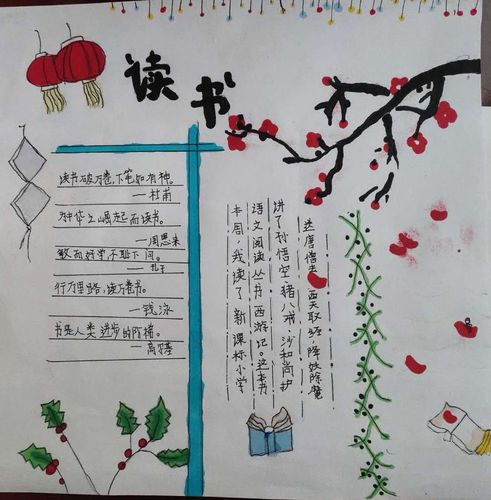 读书
读书破万卷，下笔如有神。
—杜甫
为中华之崛起而读书。
—周恩来
敏而好学不耻下问。
—孔子
行万里路，读万卷书。
—钱泳
书是人类进步的阶梯。
—高尔基
本周，我读了新课标小学
语文阅读丛书西游记。这本书
讲了孙悟空猪八戒，沙和尚护
送唐僧去西天取经，降妖除魔